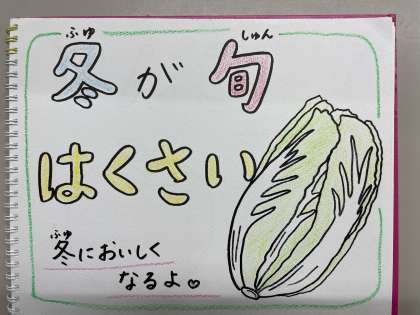 ふゆ しゅん
冬が旬
はくさい
ふゆ
冬においしく
なるよ♡